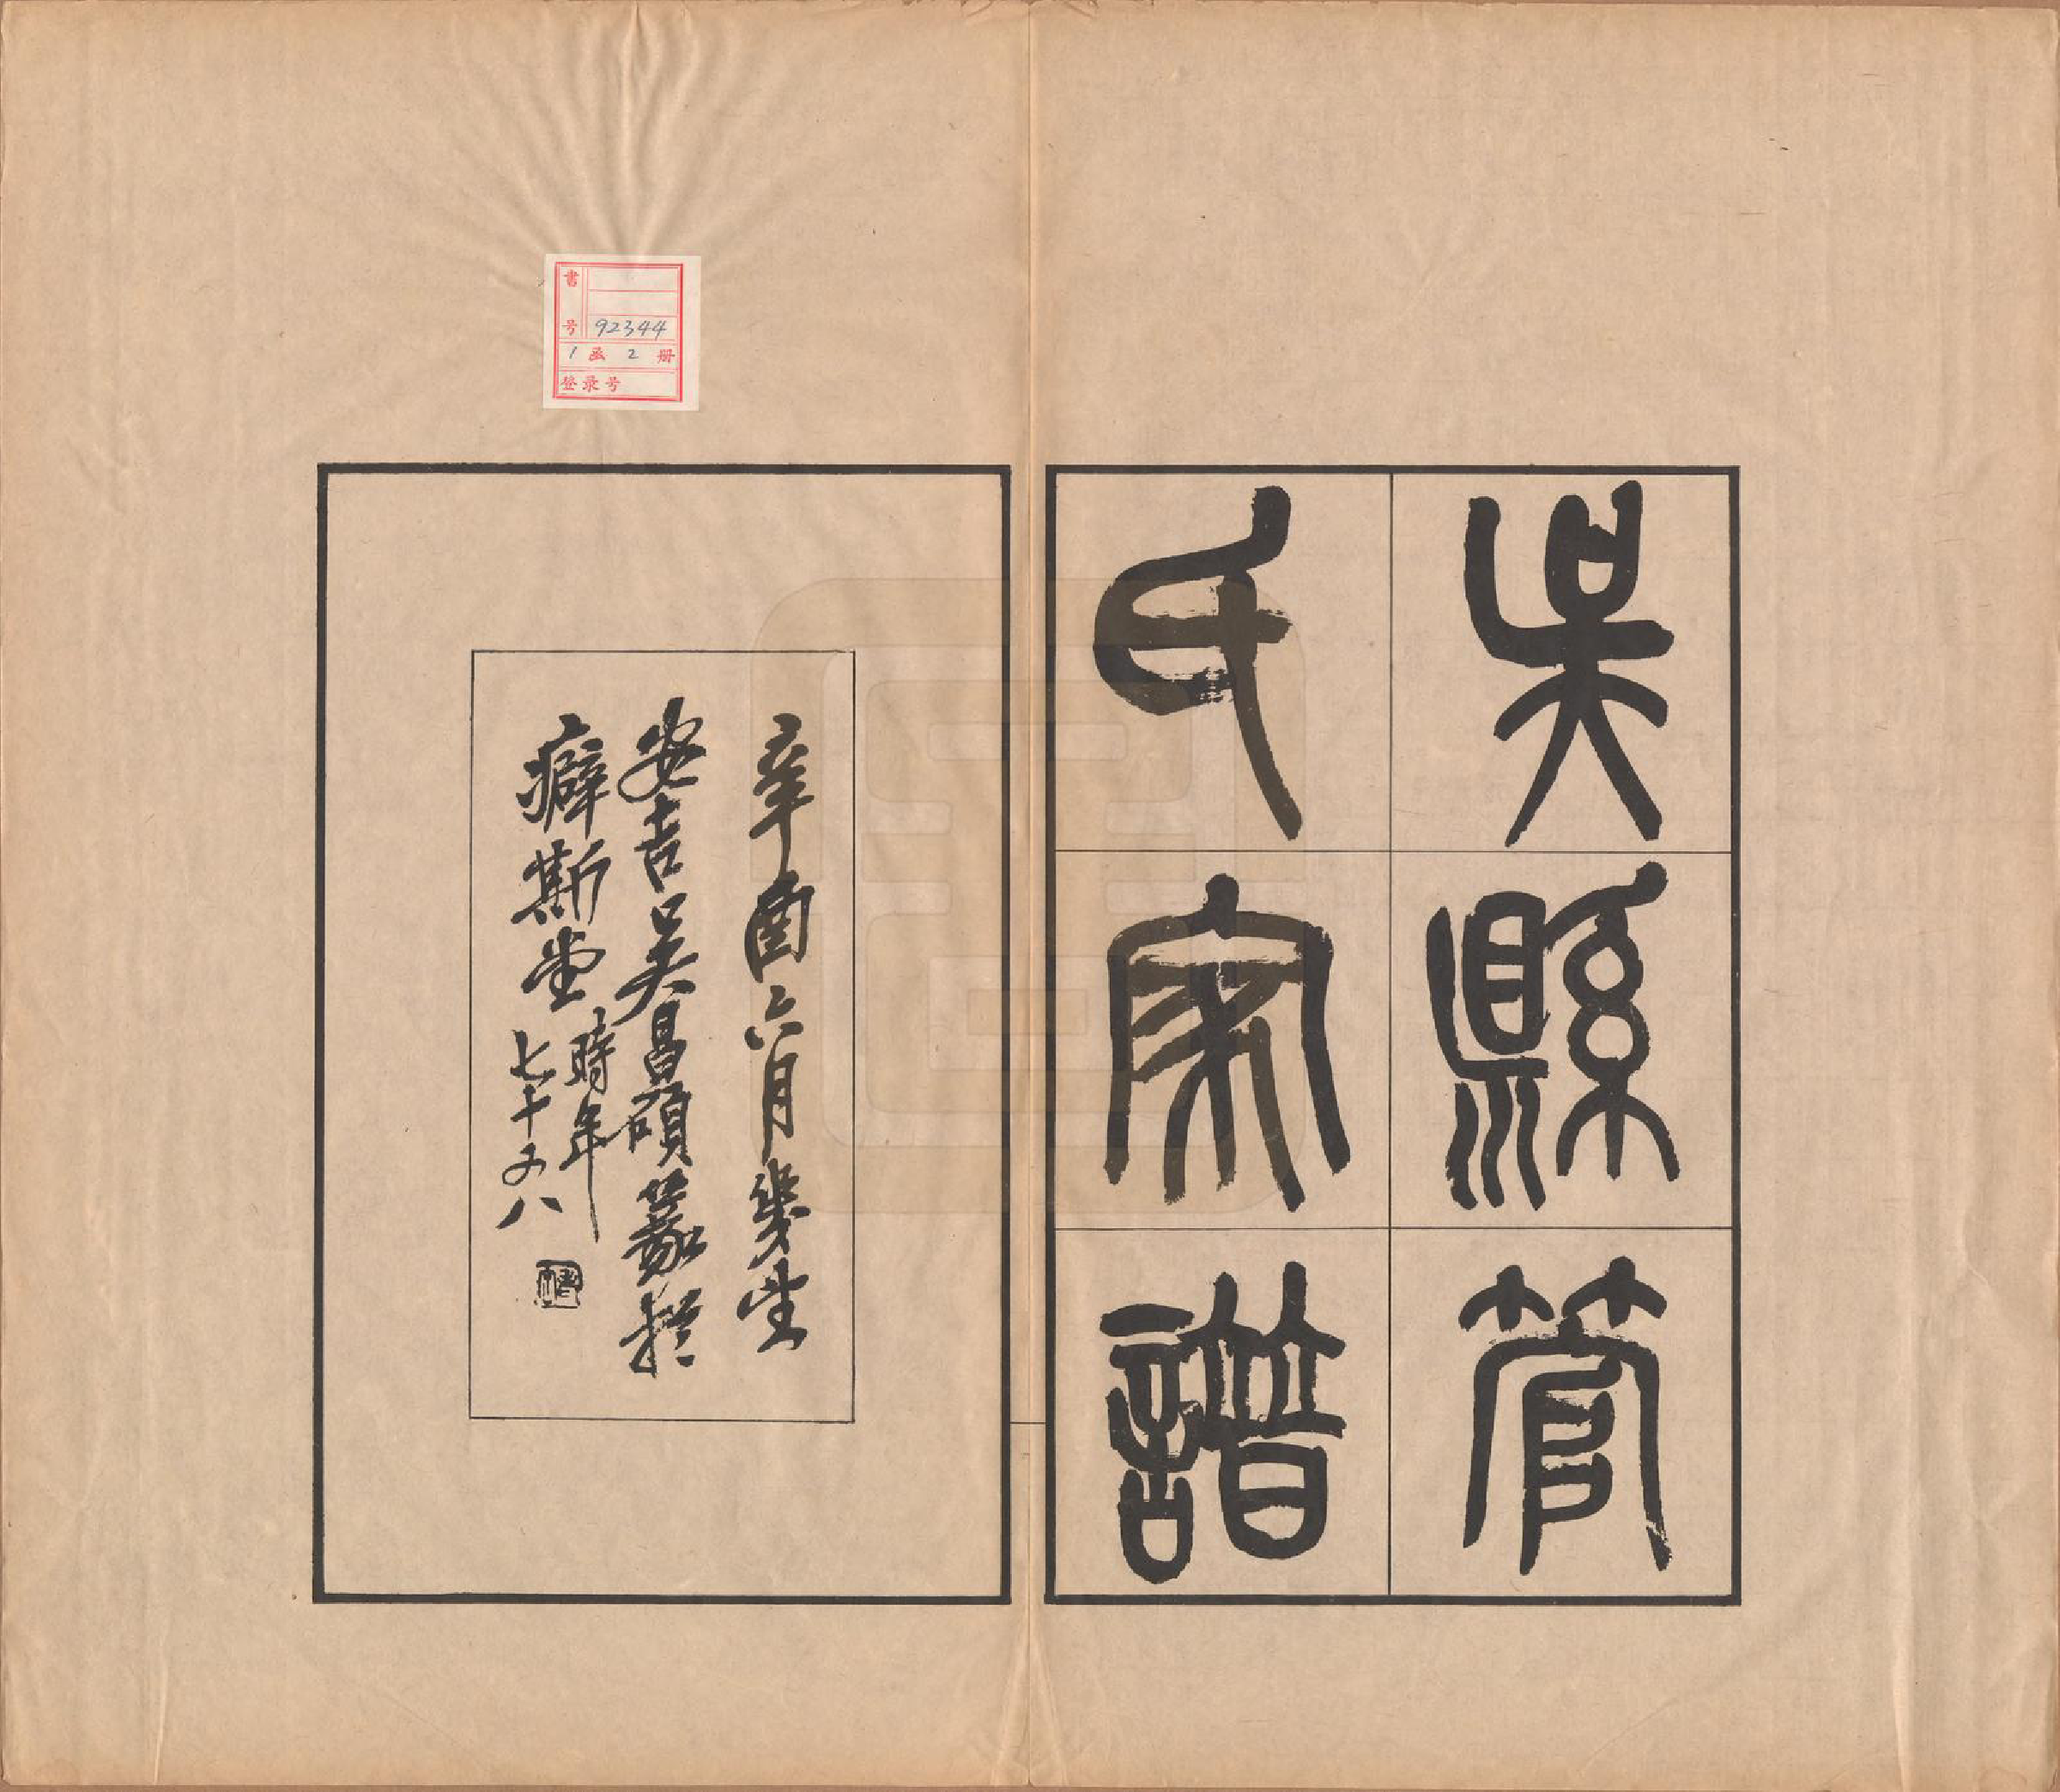 吳縣管
氏家譜
辛酉六月幾望
安吉吳昌碩篆於
癖斯堂時年
七十又八
書号 92344
1 函 2 册
登录号